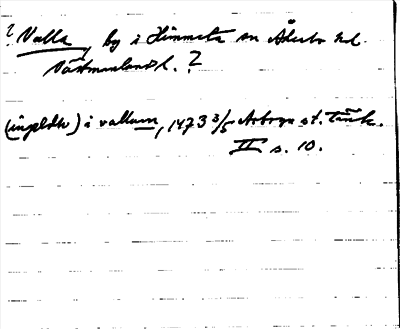 ? Valla, by i Himmeta sn Åkerbo hd.
Västmanlands l. ?
(ingeldh) i vallum, 1473 3/5 Arboga st. tänk.
II s. 10.